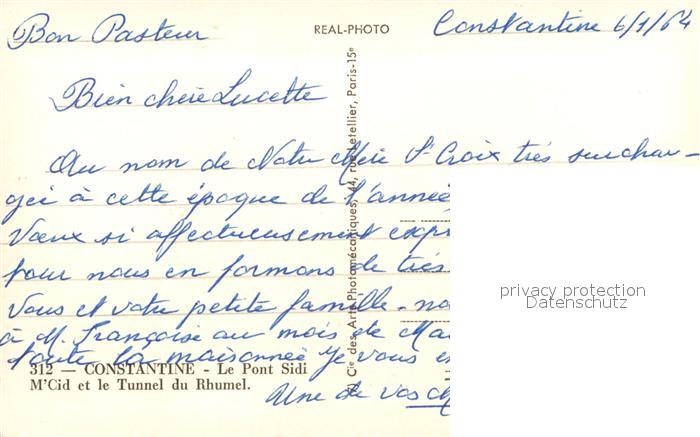 Bon Pasteur
REAL-PHOTO
Constantine 6/1/64
Bien chère Lucette
Au nom de Notre Mère St Croix très surchar-
gée à cette époque de l'année
Vœux si affectueusement expr
pour nous en formons de très
Vous et votre petite famille - no
à M. Françoise au mois de Ma
toute la maisonnée je vous e
Une de vos ch
312 — CONSTANTINE - Le Pont Sidi
M'Cid et le Tunnel du Rhumel.
Cie des Arts Photomécaniques, 44, rue Letellier, Paris-15e
privacy protection
Datenschutz